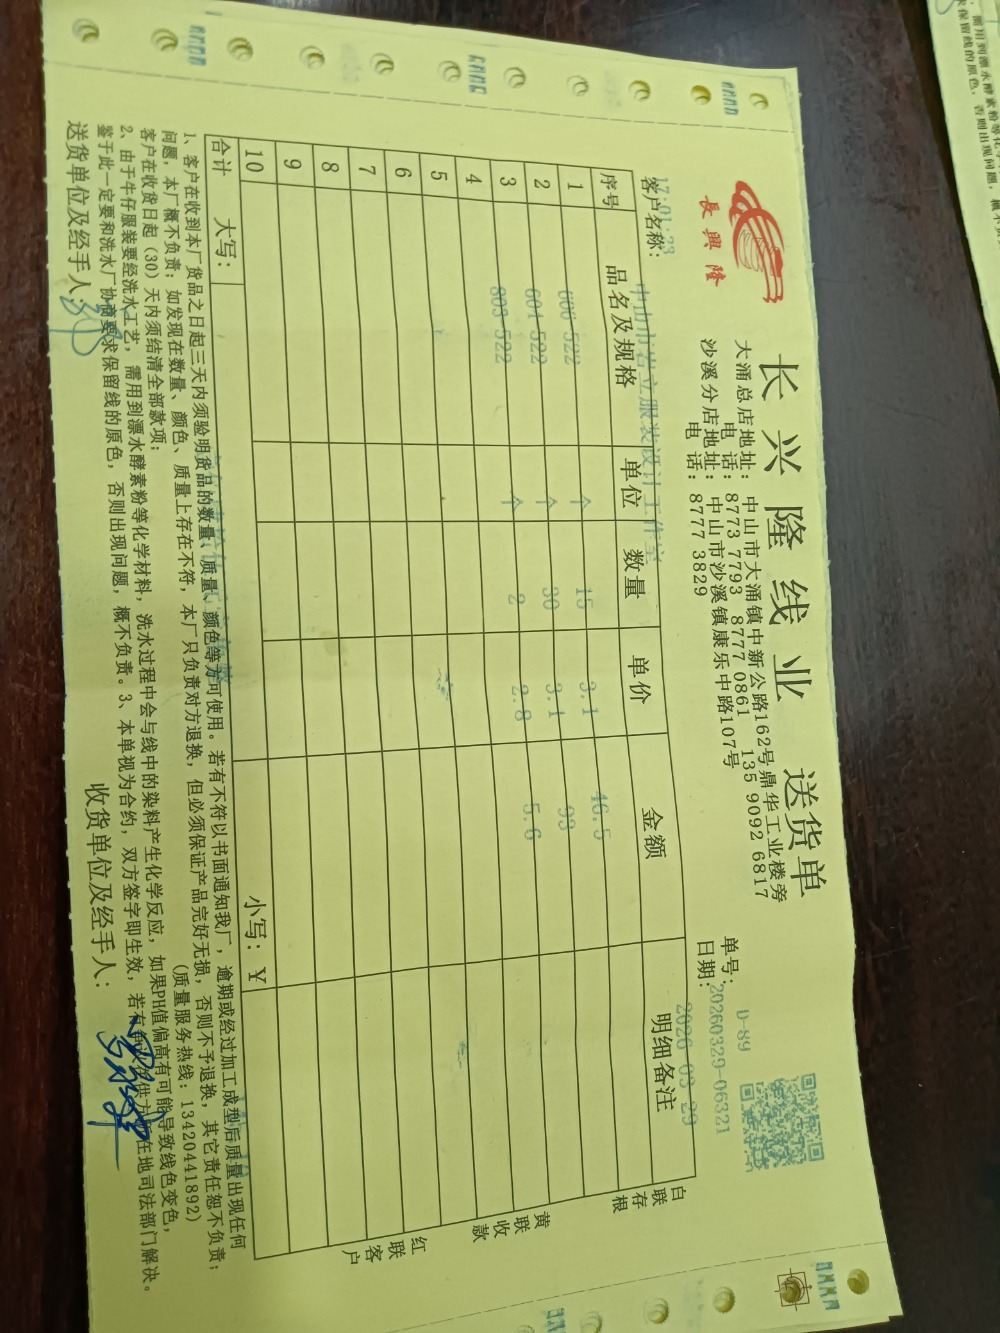 長興隆
长兴隆线业 送货单
大涌总店地址：中山市大涌镇中新公路162号鼎华工业楼旁
电话：8773 7793 8777 0861 135 9092 6817
沙溪分店地址：中山市沙溪镇康乐中路107号
电话：8777 3829
D-89
单号：20260329-06321
日期：2026-03-29
17:01:23
客户名称：中山市岩立服装设计工作室
序号 品名及规格 单位 数量 单价 金额 明细备注
1 606-522 个 15 3.1 46.5
2 604-522 个 30 3.1 93
3 803-522 个 2 2.8 5.6
4
5
6
7
8
9
10
合计 大写： 小写：￥
白联存根
黄联收款
红联客户
1、客户在收到本厂货品之日起三天内须验明货品的数量、质量、颜色等方可使用。若有不符以书面通知我厂，逾期或经过加工成型后质量出现任何
问题，本厂概不负责；如发现在数量、颜色、质量上存在不符，本厂只负责对方退换，但必须保证产品完好无损，否则不予退换，其它责任恕不负责；
客户在收货日起（30）天内须结清全部款项； (质量服务热线：13420441892)
2、由于牛仔服装要经洗水工艺，需用到漂水酵素粉等化学材料，洗水过程中会与线中的染料产生化学反应，如果PH值偏高有可能导致线色变色，
鉴于此一定要和洗水厂协商要求保留线的原色，否则出现问题，概不负责。3、本单视为合约，双方签字即生效，若有 在地司法部门解决。
送货单位及经手人： 收货单位及经手人：